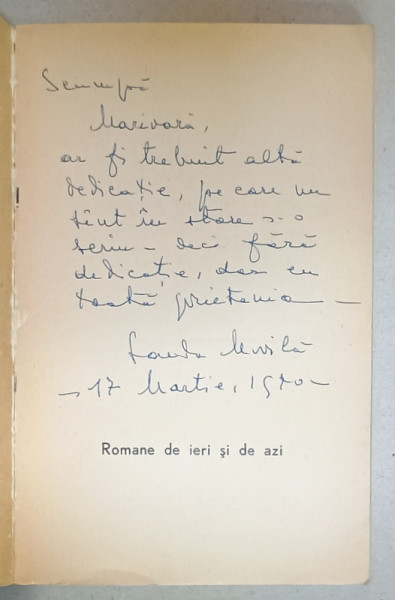 Scumpă
Marioară,
ar fi trebuit altă
dedicație, pe care nu
sînt în stare s-o
scriu – deci fără
dedicație, dar cu
toată prietenia –
Sanda Movilă
– 17 Martie, 1970 –
Romane de ieri și de azi